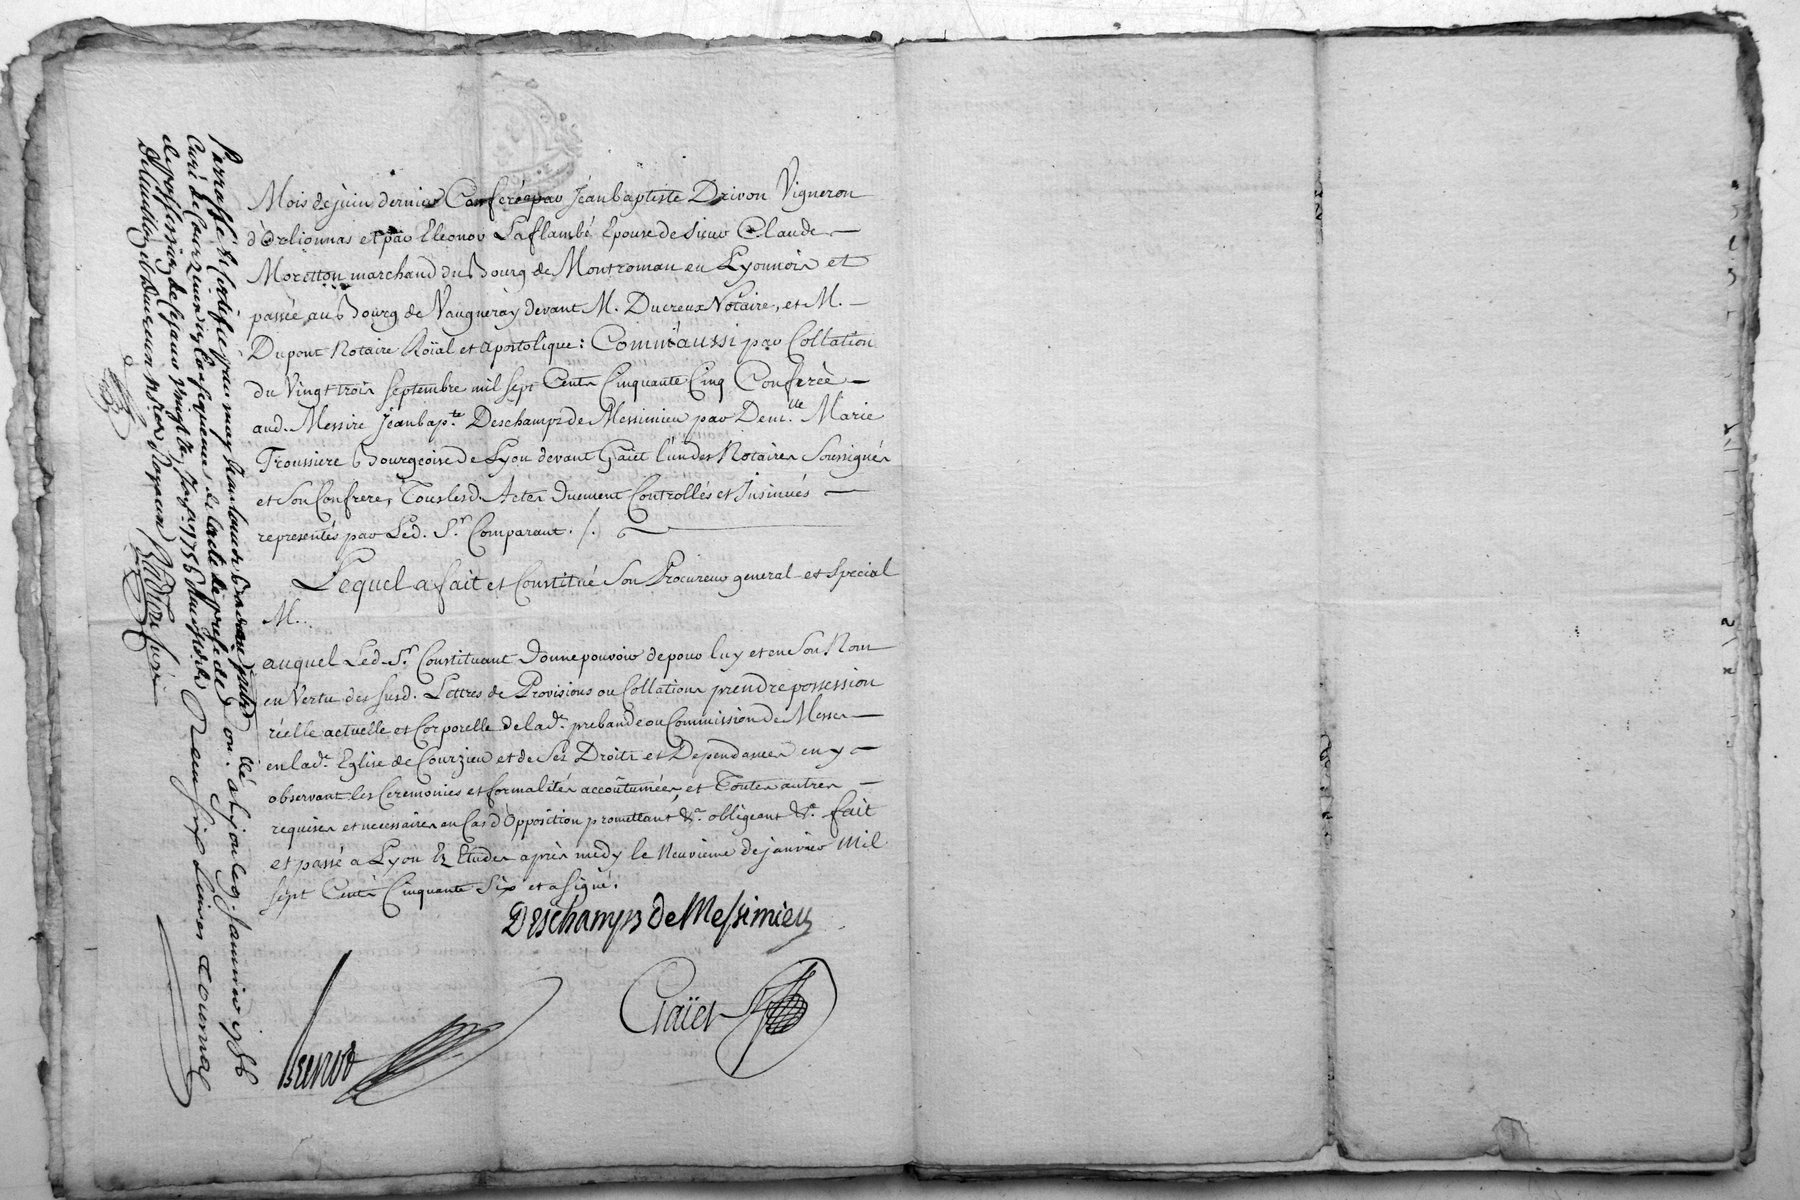 Mois de juin dernier Conferée par Jean baptiste Drivon Vigneron
d'Orlionnas et par Eleonor Laflambé Epouse de Sieur Claude
Moretton marchand du Bourg de Montroman en Lyonnois et
passée au Bourg de Vaugneray devant M. Ducreux Notaire, et M.
Dupont Notaire Roïal et Apostolique: Comm'aussi par Collation
du Vingt trois Septembre mil sept Cents Cinquante Cinq Conferée
aud. Messire Jean bap.te Deschamps de Messimieu par Dem.lle Marie
Troussiere Bourgeoise de Lyon devant Gaiet l'un des Notaires Soussignés
et Son Confrere, Tous lesd. Actes Duement Controllés et Insinués
representés par Led. Sr. Comparant ./.
Lequel a fait et Constitué Son Procureur general et Special
M..
auquel Led. Sr. Constituant Donne pouvoir de pour luy et en Son Nom
en Vertu des Susd. Lettres de Provisions ou Collations prendre possession
réelle actuelle et Corporelle de lad.e prebande ou Commission de Messes
en lad.e Eglise de Courzieu et de Ses Droits et Dependances en y
observant les Ceremonies et formalités accoûtumées, et Toutes autres
requises et necessaires en Cas d'Opposition promettant &a. obligeant &a. fait
et passé a Lyon Ez Etudes après midy le Neuvieme de janvier Mil
sept Cents Cinquante Six et a Signé.
Deschamps de Messimieu
Gaïet
Parraffé & Certifié par moy
Curé de Courzieu en Consequence de l'acte de prise de
de possession de ce jour 1756
a Lyon le 9. Janvier 1756
Reçu six Livres